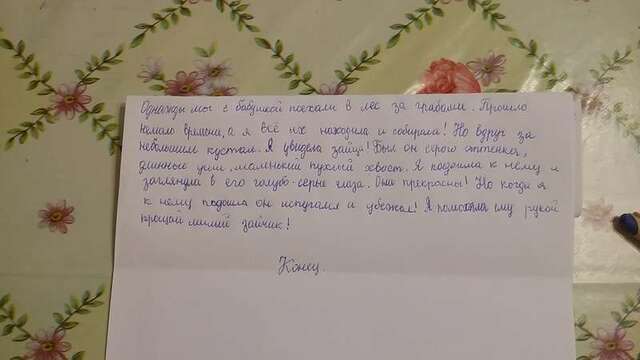 Однажды мы с бабушкой поехали в лес за грибами. Прошло
немало времени, а я всё их находила и собирала! Но вдруг за
небольшим кустом. Я увидела зайца! Был он серого оттенка,
длинные уши, маленький пухлый хвост. Я подошла к нему и
заглянула в его голубо-серые глаза. Они прекрасны! Но когда я
к нему подошла он испугался и убежал! Я помотала ему рукой
прощай милый зайчик!
Конец.